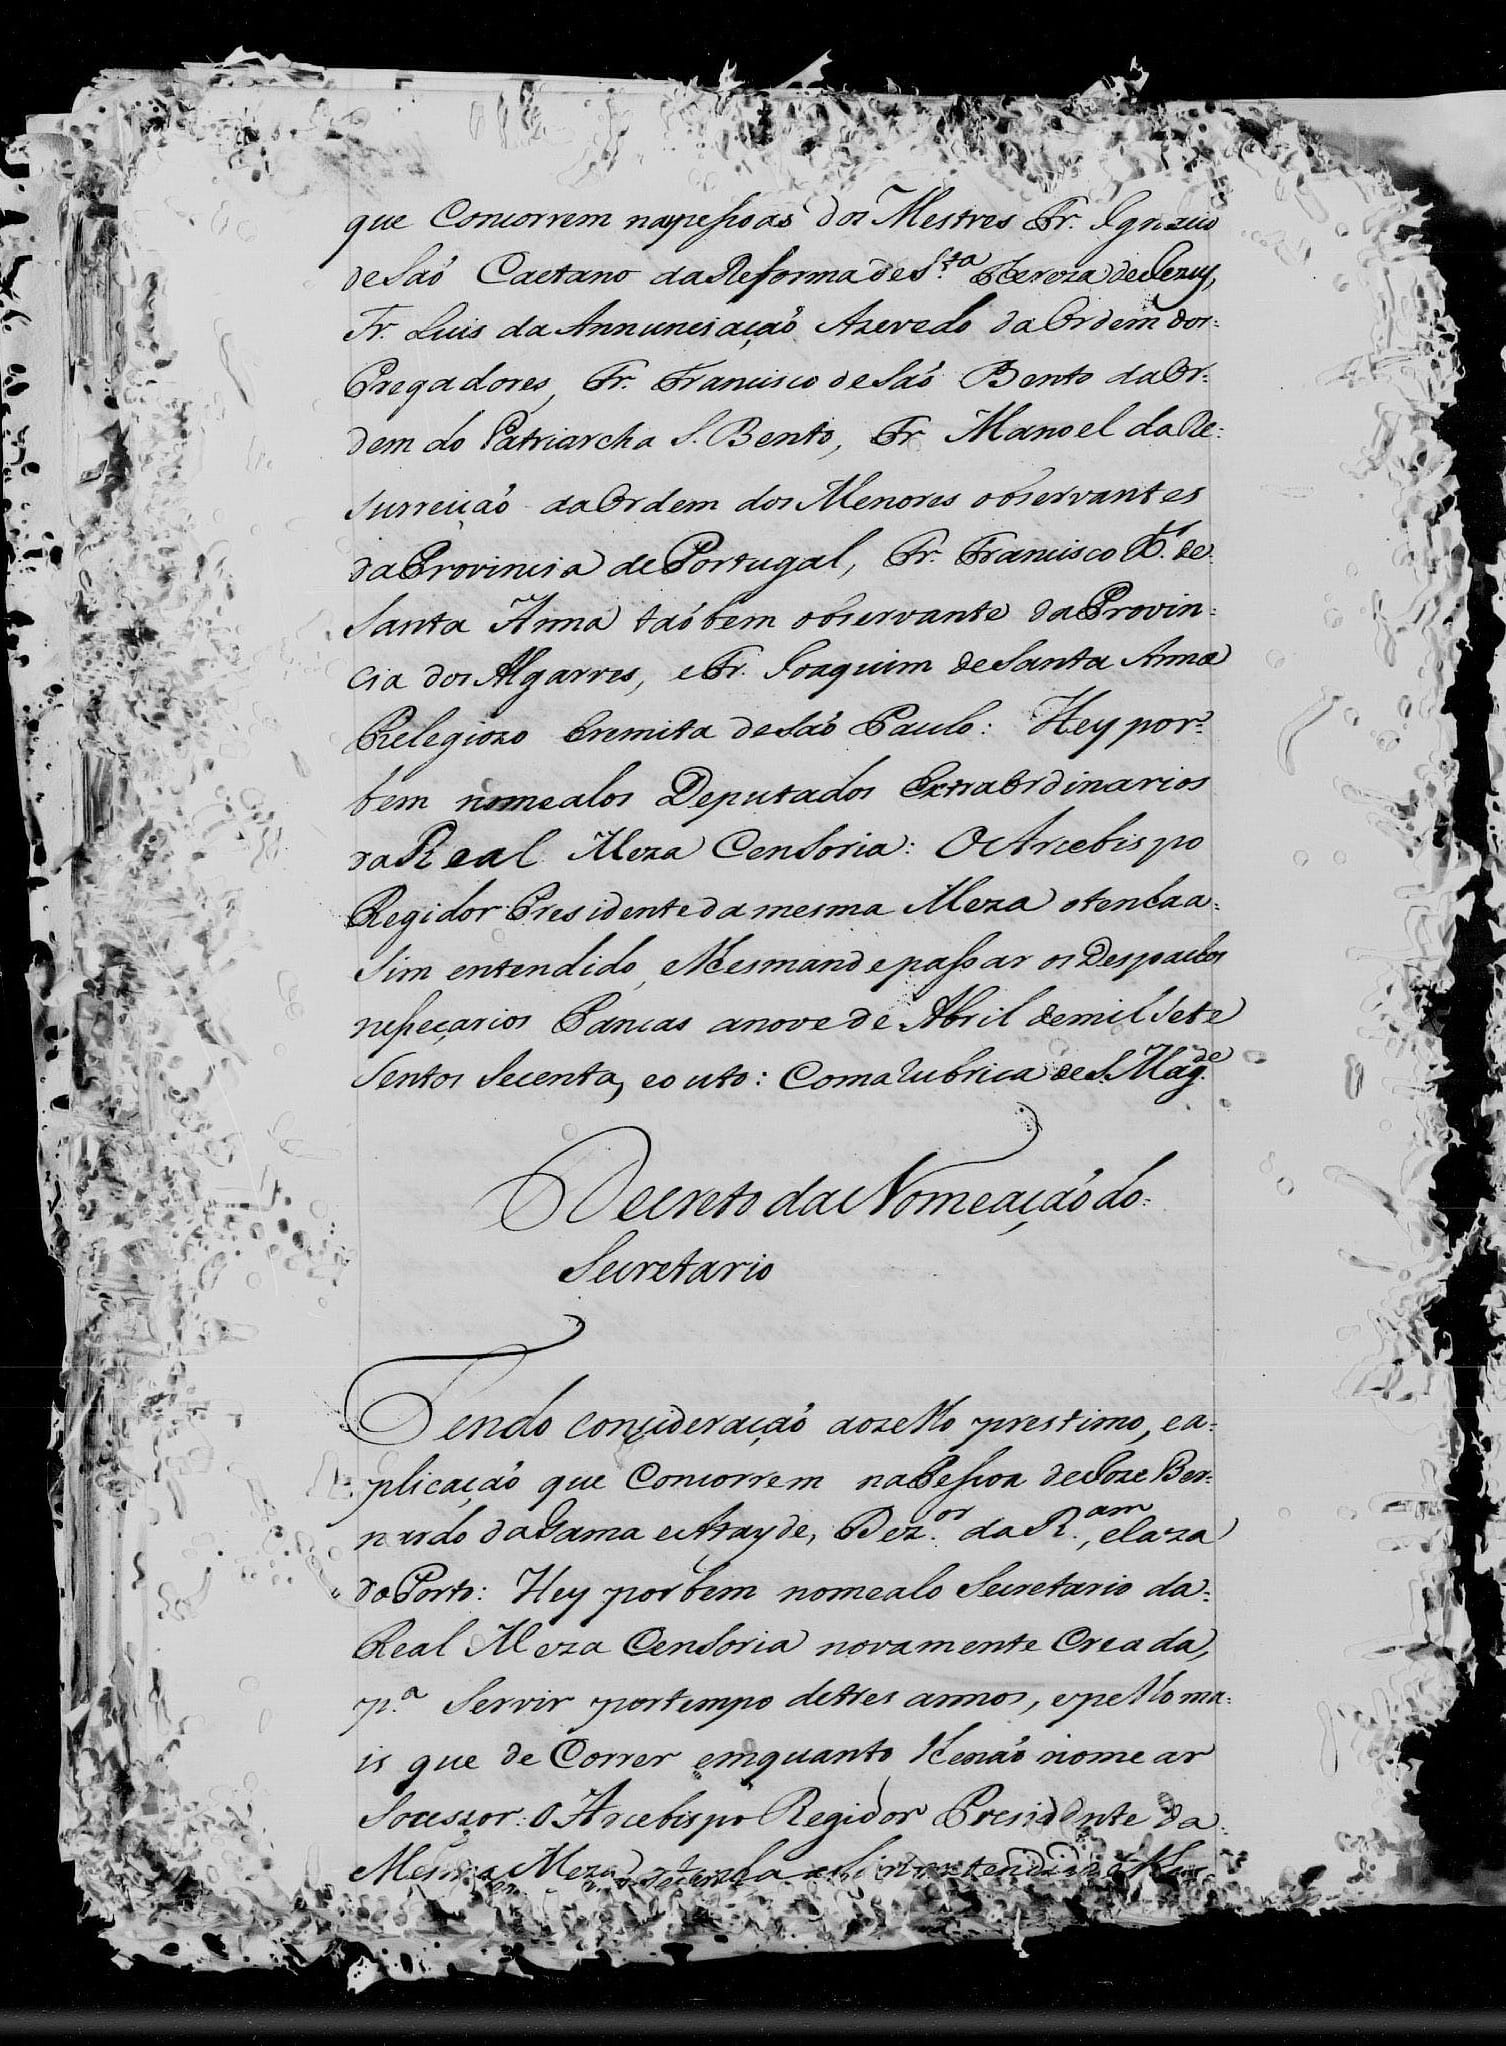 que Concorrem napessoas dos Mestres Fr. Ignacio
de Saõ Caetano da Reforma de S.ta Tereza de Jezus,
Fr. Luis da Annunciaçaõ Azevedo da Ordem dos:
Pregadores, Fr. Francisco de Saõ Bento da Or:
dem do Patriarcha S. Bento, Fr Manoel da Re:
surreiçaõ da Ordem dos Menores observantes
da Provincia de Portugal, Fr. Francisco X.er de
Santa Anna taõbem observante da Provin:
cia dos Algarves, e Fr. Joaquim de Santa Anna
Relegiozo Eremita de Saõ Paulo: Hey por:
bem nomealos Deputados ExtraOrdinarios
da Real Meza Censoria: O Arcebispo
Regidor Presidente da mesma Meza o tenha a:
sim entendido, e lhes mande passar os Despachos
nesseçarios Pancas a nove de Abril de mil séte
Sentos Secenta, e outo: Com a rubrica de S. Mag.de
Decreto da Nomeaçaõ do:
Secretario
Tendo consideraçaõ ao zello prestimo, e a:
plicaçaõ que Concorrem na Pessoa de Joze Ber:
nardo da Gama e Atayde, Dez.or da R.am, e Caza
do Porto: Hey por bem nomealo Secretario da:
Real Meza Censoria novamente Creada,
p.a Servir por tempo de tres annos, e pello ma:
is que de Correr emquanto lhe naõ nomear
Socessor: O Arcebispo Regidor Presidente da:
Mesma Meza o tenha assim entendido e lhe